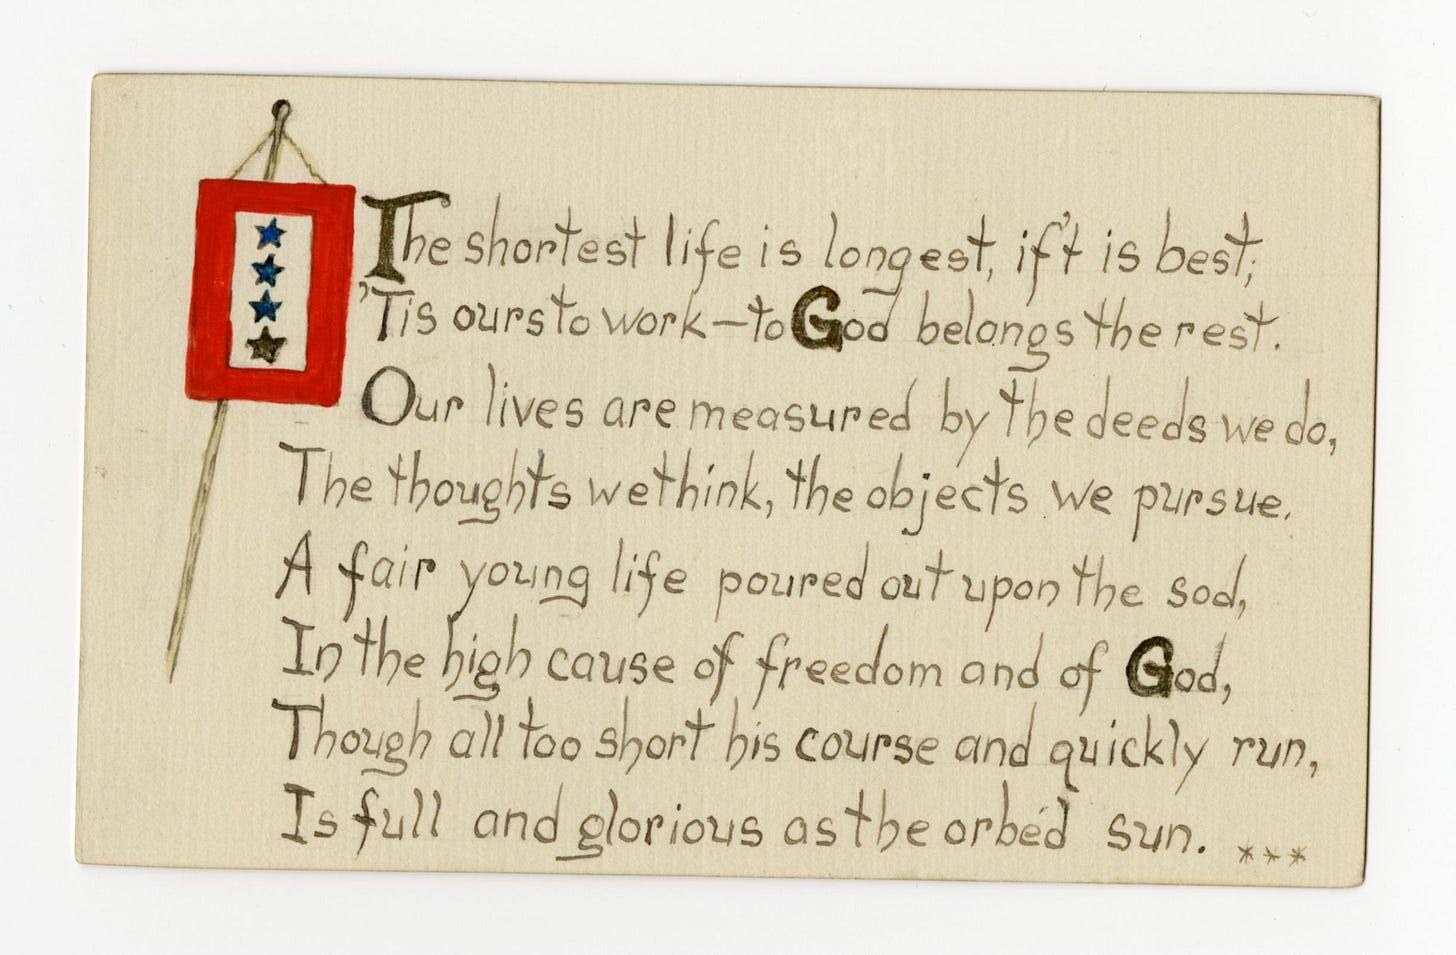 The shortest life is longest, if't is best;
'Tis ours to work—to God belongs the rest.
Our lives are measured by the deeds we do,
The thoughts we think, the objects we pursue.
A fair young life poured out upon the sod,
In the high cause of freedom and of God,
Though all too short his course and quickly run,
Is full and glorious as the orbéd sun. ***